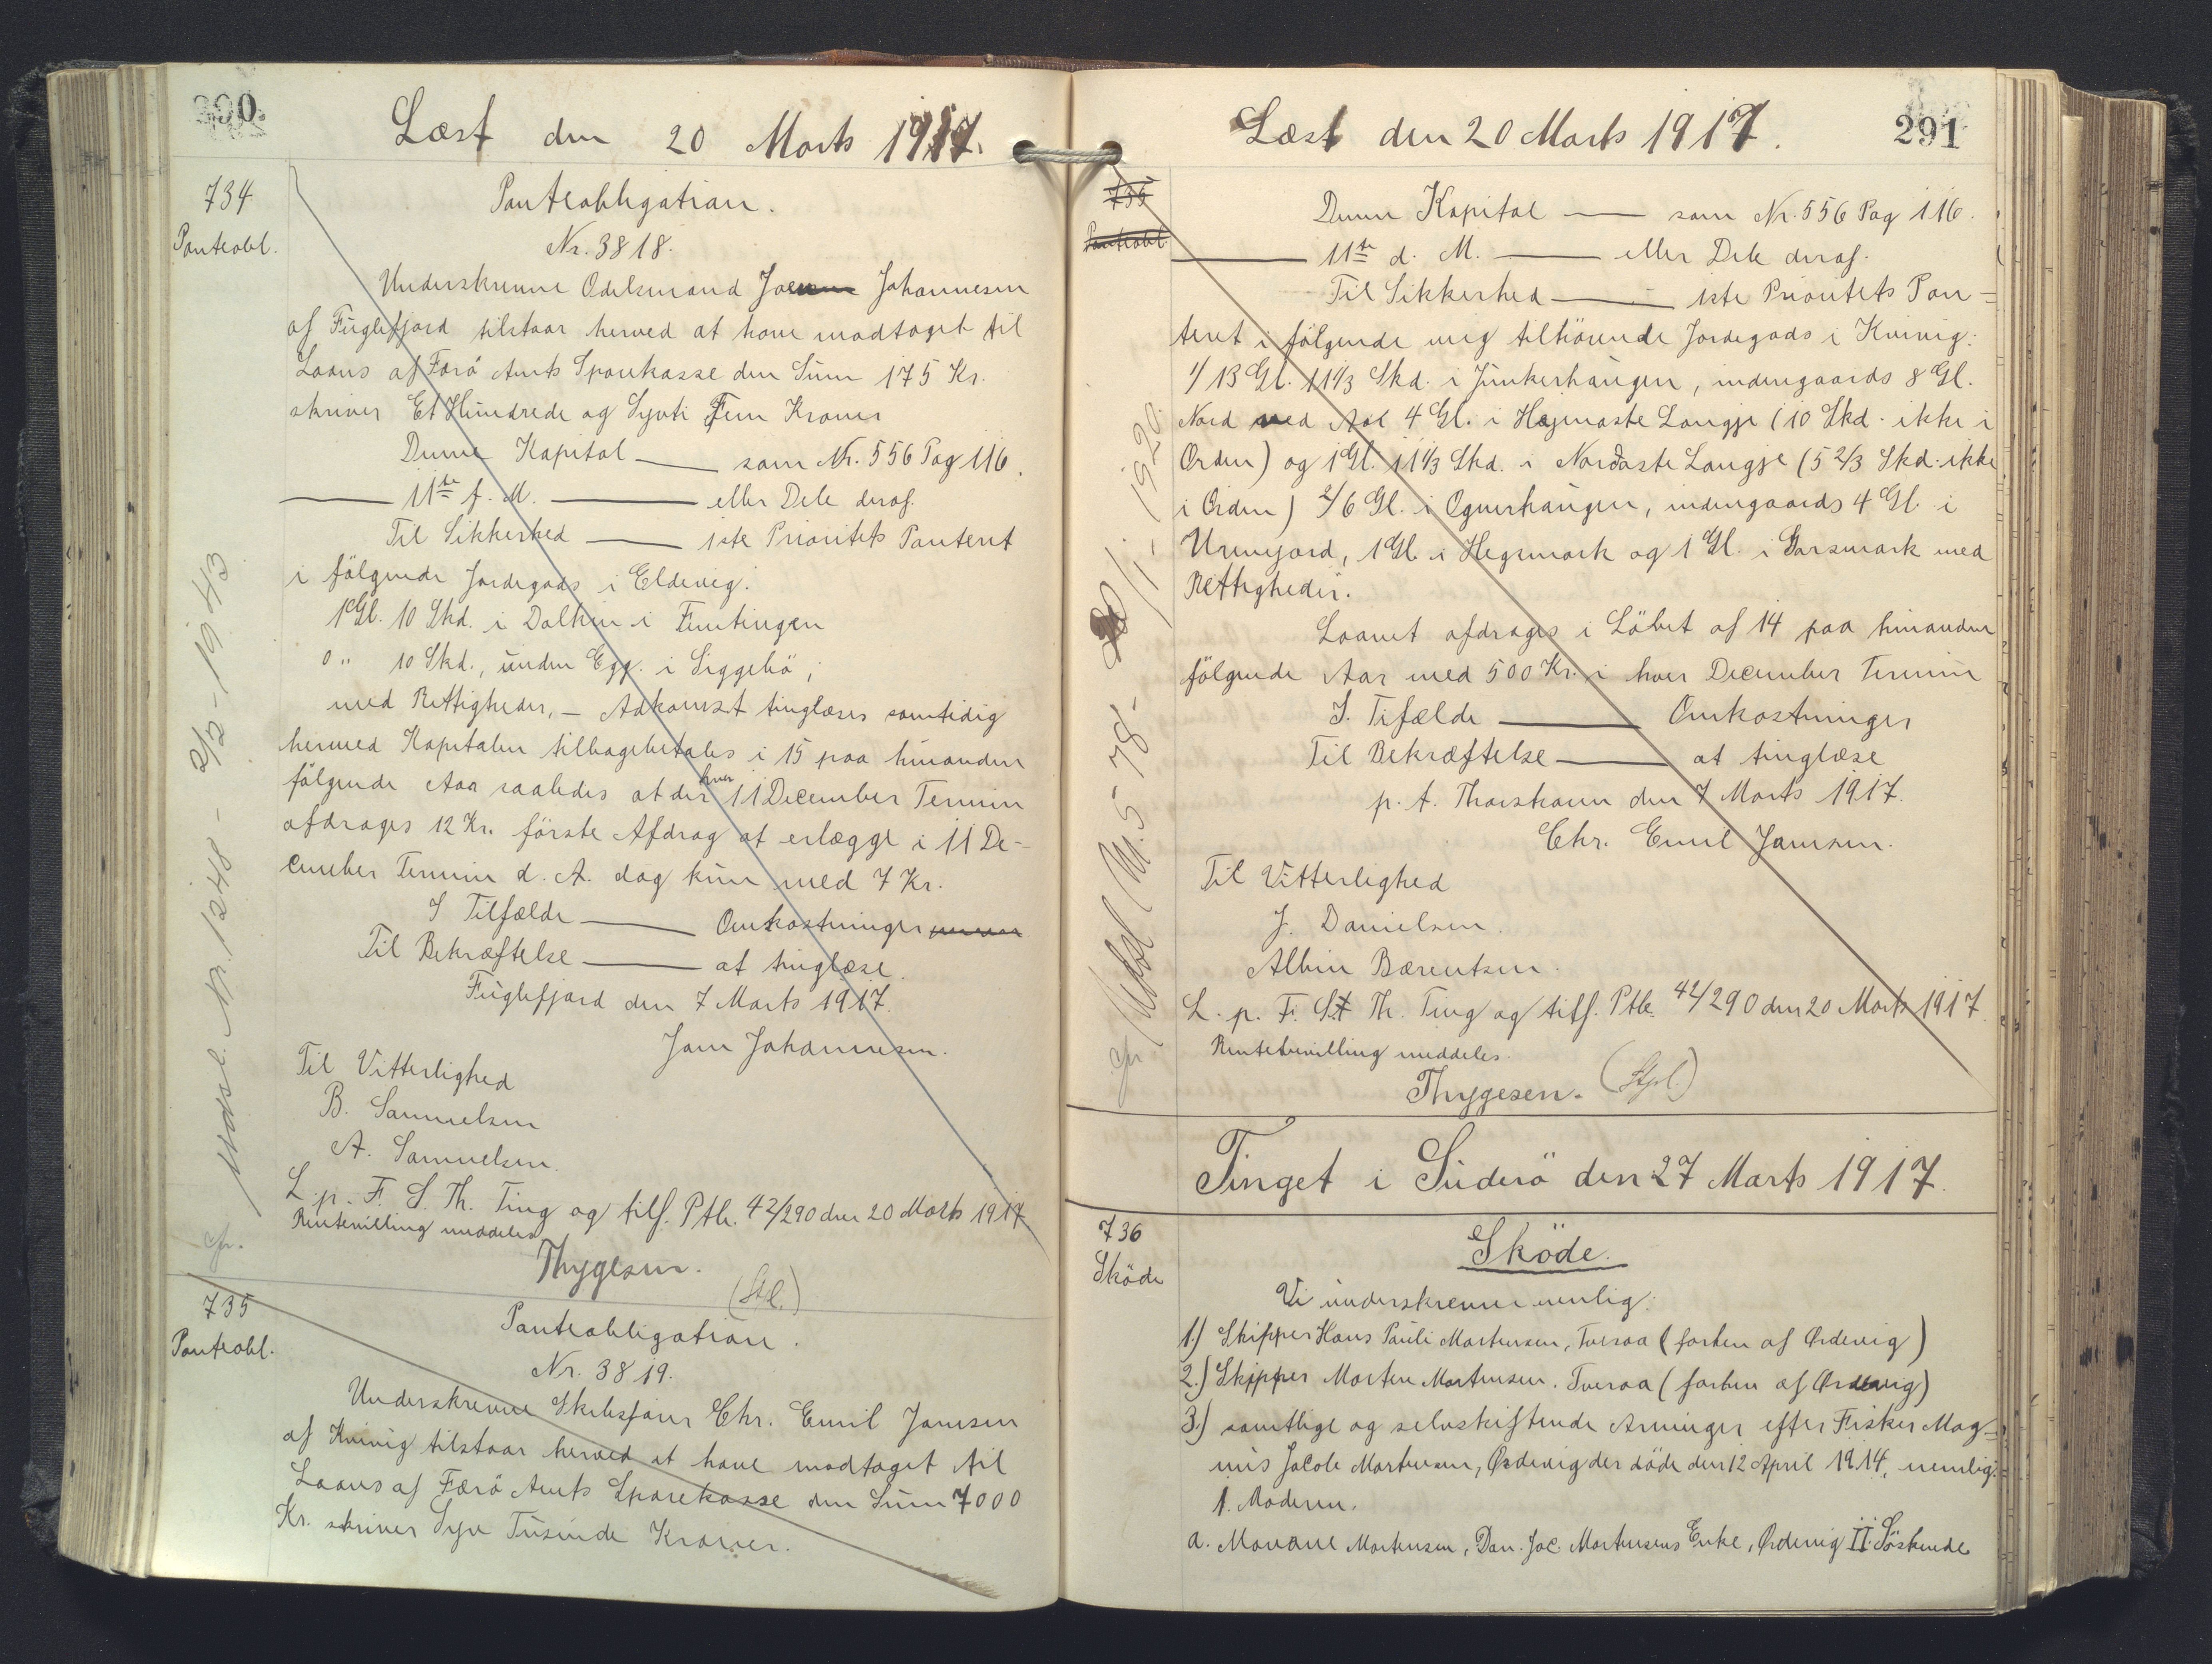 290.
Læst den 20 Marts 1917.
734
Panteobl.
Panteobligation.
Nr. 3818.
Underskrevne Odelsmand Joen Johannesen
af Fuglefjord tilstaar herved at have modtaget til
Laans af Færö Amts Sparekasse den Sum 175 Kr.
skriver Et Hundrede og Syvti Fem Kroner
Denne Kapital — som Nr. 556 Pag 116.
— 11te f. M. — eller Dele deraf.
Til Sikkerhed — 1ste Prioritets Panteret
i fölgende Jordegods i Eldevig:
1 Gl. 10 Skd. i Dalken i Fimtingen
0 " 10 Skd., under Egg. i Siggebö;
med Rettigheder, — Adkomst tinglæses samtidig
hermed Kapitalen tilbagebetales i 15 paa hinanden
fölgende Aar saaledes at der hver 11 December Termin
afdrages 12 Kr. förste Afdrag at erlægge i 11 De-
cember Termin d. A. dog kun med 7 Kr.
I Tilfælde — Omkostninger
Til Bekræftelse — at tinglæse.
Fuglefjord den 7 Marts 1917.
Joen Johannesen.
Til Vitterlighed
B. Samuelsen
A. Samuelsen.
L. p. F. S. Th. Ting og tilf. Ptb. 42/290 den 20 Marts 1917
Rentevilling meddeles
Thygesen.
(Stl.)
Udsl. Nr. 1248 - 2/2 - 1943
735
Panteobl.
Panteobligation.
Nr. 3819.
Underskrevne Skibsförer Chr. Emil Jamsen
af Kvivig tilstaar herved at have modtaget til
Laans af Færö Amts Sparekasse den Sum 7000
Kr. skriver Syv Tusinde Kroner.
291
Læst den 20 Marts 1917.
735
Panteobl
Denne Kapital — som Nr. 556 Pag 116.
— 11te d. M. — eller Dele deraf.
Til Sikkerhed — 1ste Prioritets Pan=
teret i fölgende mig tilhörende Jordegods i Kvivig:
1/ 13 Gl. 11 1/3 Skd. i Junkerhaugen, indengaards 8 Gl.
Nord ved Aal 4 Gl. i Høgmaste Langje (10 Skd. ikke i
Orden) og 1 Gl. 11 1/3 Skd. i Nordaste Langje (5 2/3 Skd. ikke
i Orden) 2/ 6 Gl. i Ognerhaugen, indengaards 4 Gl. i
Urmejord, 1 Gl. i Hegsmark og 1 Gl. i Garsmark med
Rettigheder.
Laanet afdrages i Löbet af 14 paa hinanden
fölgende Aar med 500 Kr. i hver December Termin
I. Tifælde — Omkostninger
Til Bekræftelse — at tinglæse
p. t. Thorshavn den 7 Marts 1917.
Chr. Emil Jamsen.
Til Vitterlighed
J. Danielsen.
Albin Bærentsen.
L. p. F. St Th. Ting og tilf. Ptb. 42/290 den 20 Marts 1917.
Rentebevilling meddeles.
Thygesen. (Stpl.)
Tinget i Süderö den 27 Marts 1917.
736
Sköde
Sköde.
Vi underskrevne nemlig:
1.) Skipper Hans Pauli Mortensen, Tveraa (forhen af Ørdevig)
2.) Skipper Morten Mortensen. Tveraa (forhen af Ørdevig)
3.) samtlige og selvskiftende Arvinger efter Fisker Mag=
nus Jacob Mortensen, Ørdevig der döde den 12 April 1914, nemlig:
1. Moderen.
a. Mortensen, Dan. Jac. Mortensens Enke, Ørdevig II. Söskende